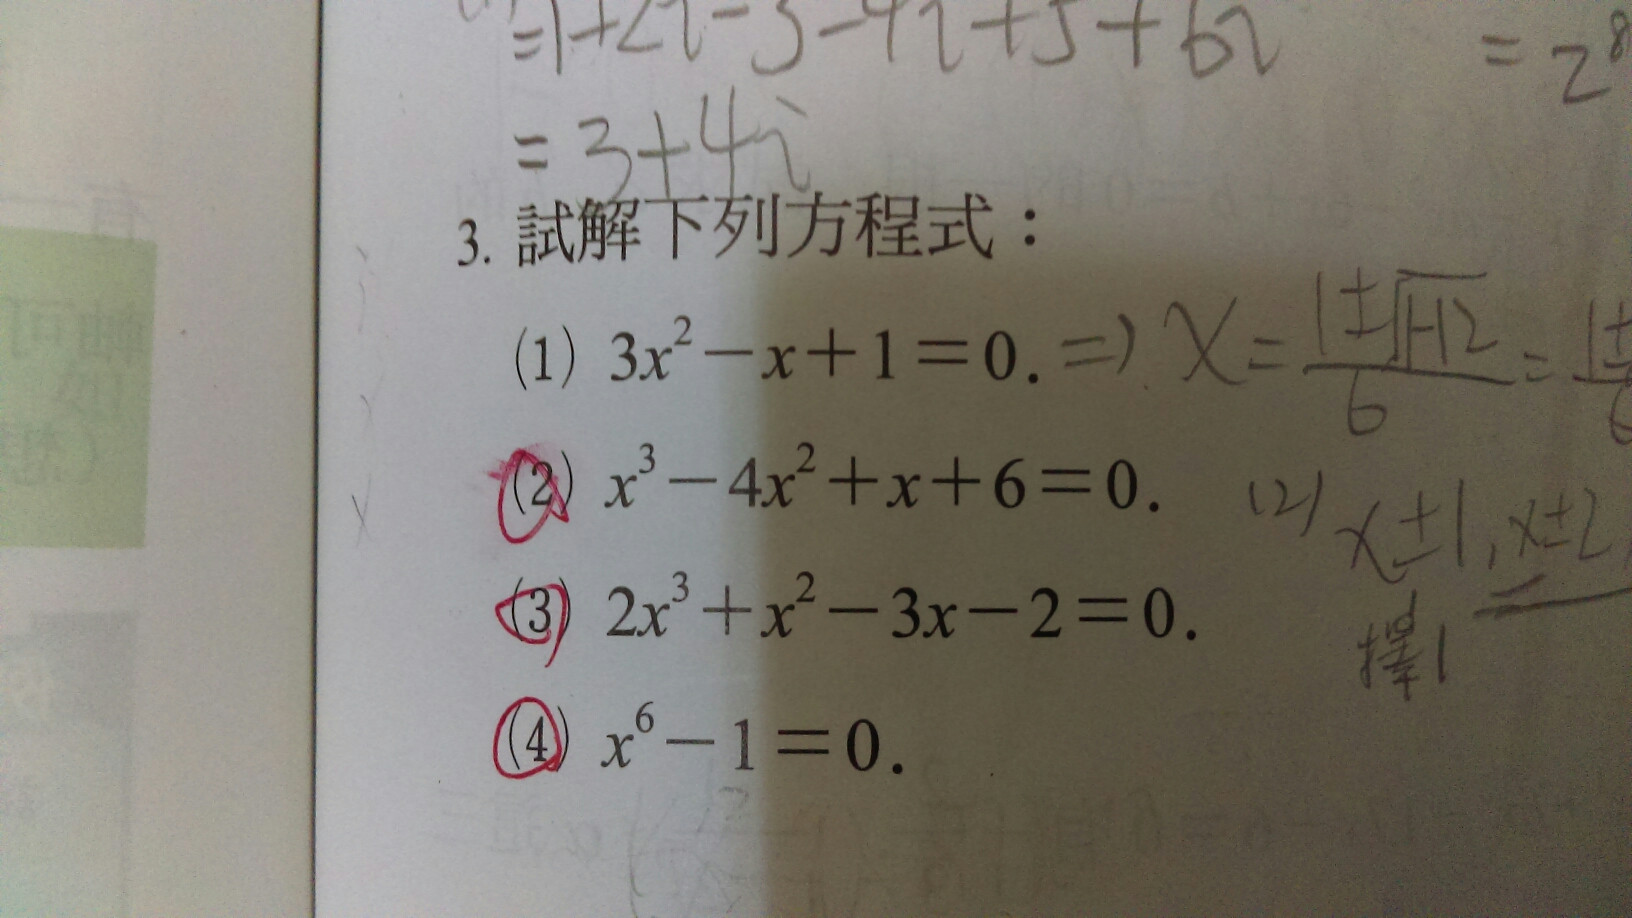 =1+2i-3-4i+5+6i
= 2⁸
= 3+4i
3. 試解下列方程式：
(1) 3x²－x＋1＝0. ⇒ x = (1±√(1-12))/6 = 1±
(2) x³－4x²＋x＋6＝0. (2) x±1, x±2,
(3) 2x³＋x²－3x－2＝0.
擇1
(4) x⁶－1＝0.